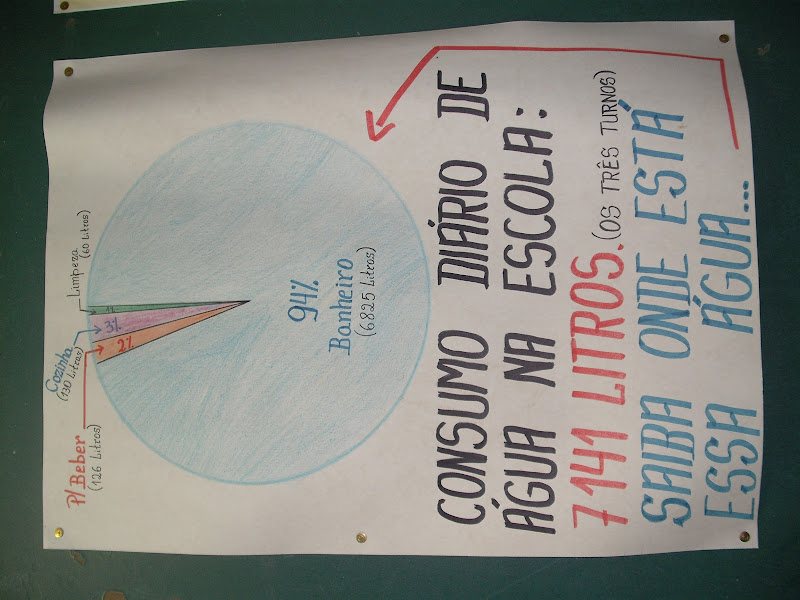 CONSUMO DIÁRIO DE
ÁGUA NA ESCOLA:
7141 LITROS. (OS TRÊS TURNOS)
SAIBA ONDE ESTÁ
ESSA ÁGUA...
P/Beber
(126 Litros)
2%
Cozinha
(130 Litros)
3%
Limpeza
(60 Litros)
1%
94%
Banheiro
(6825 Litros)